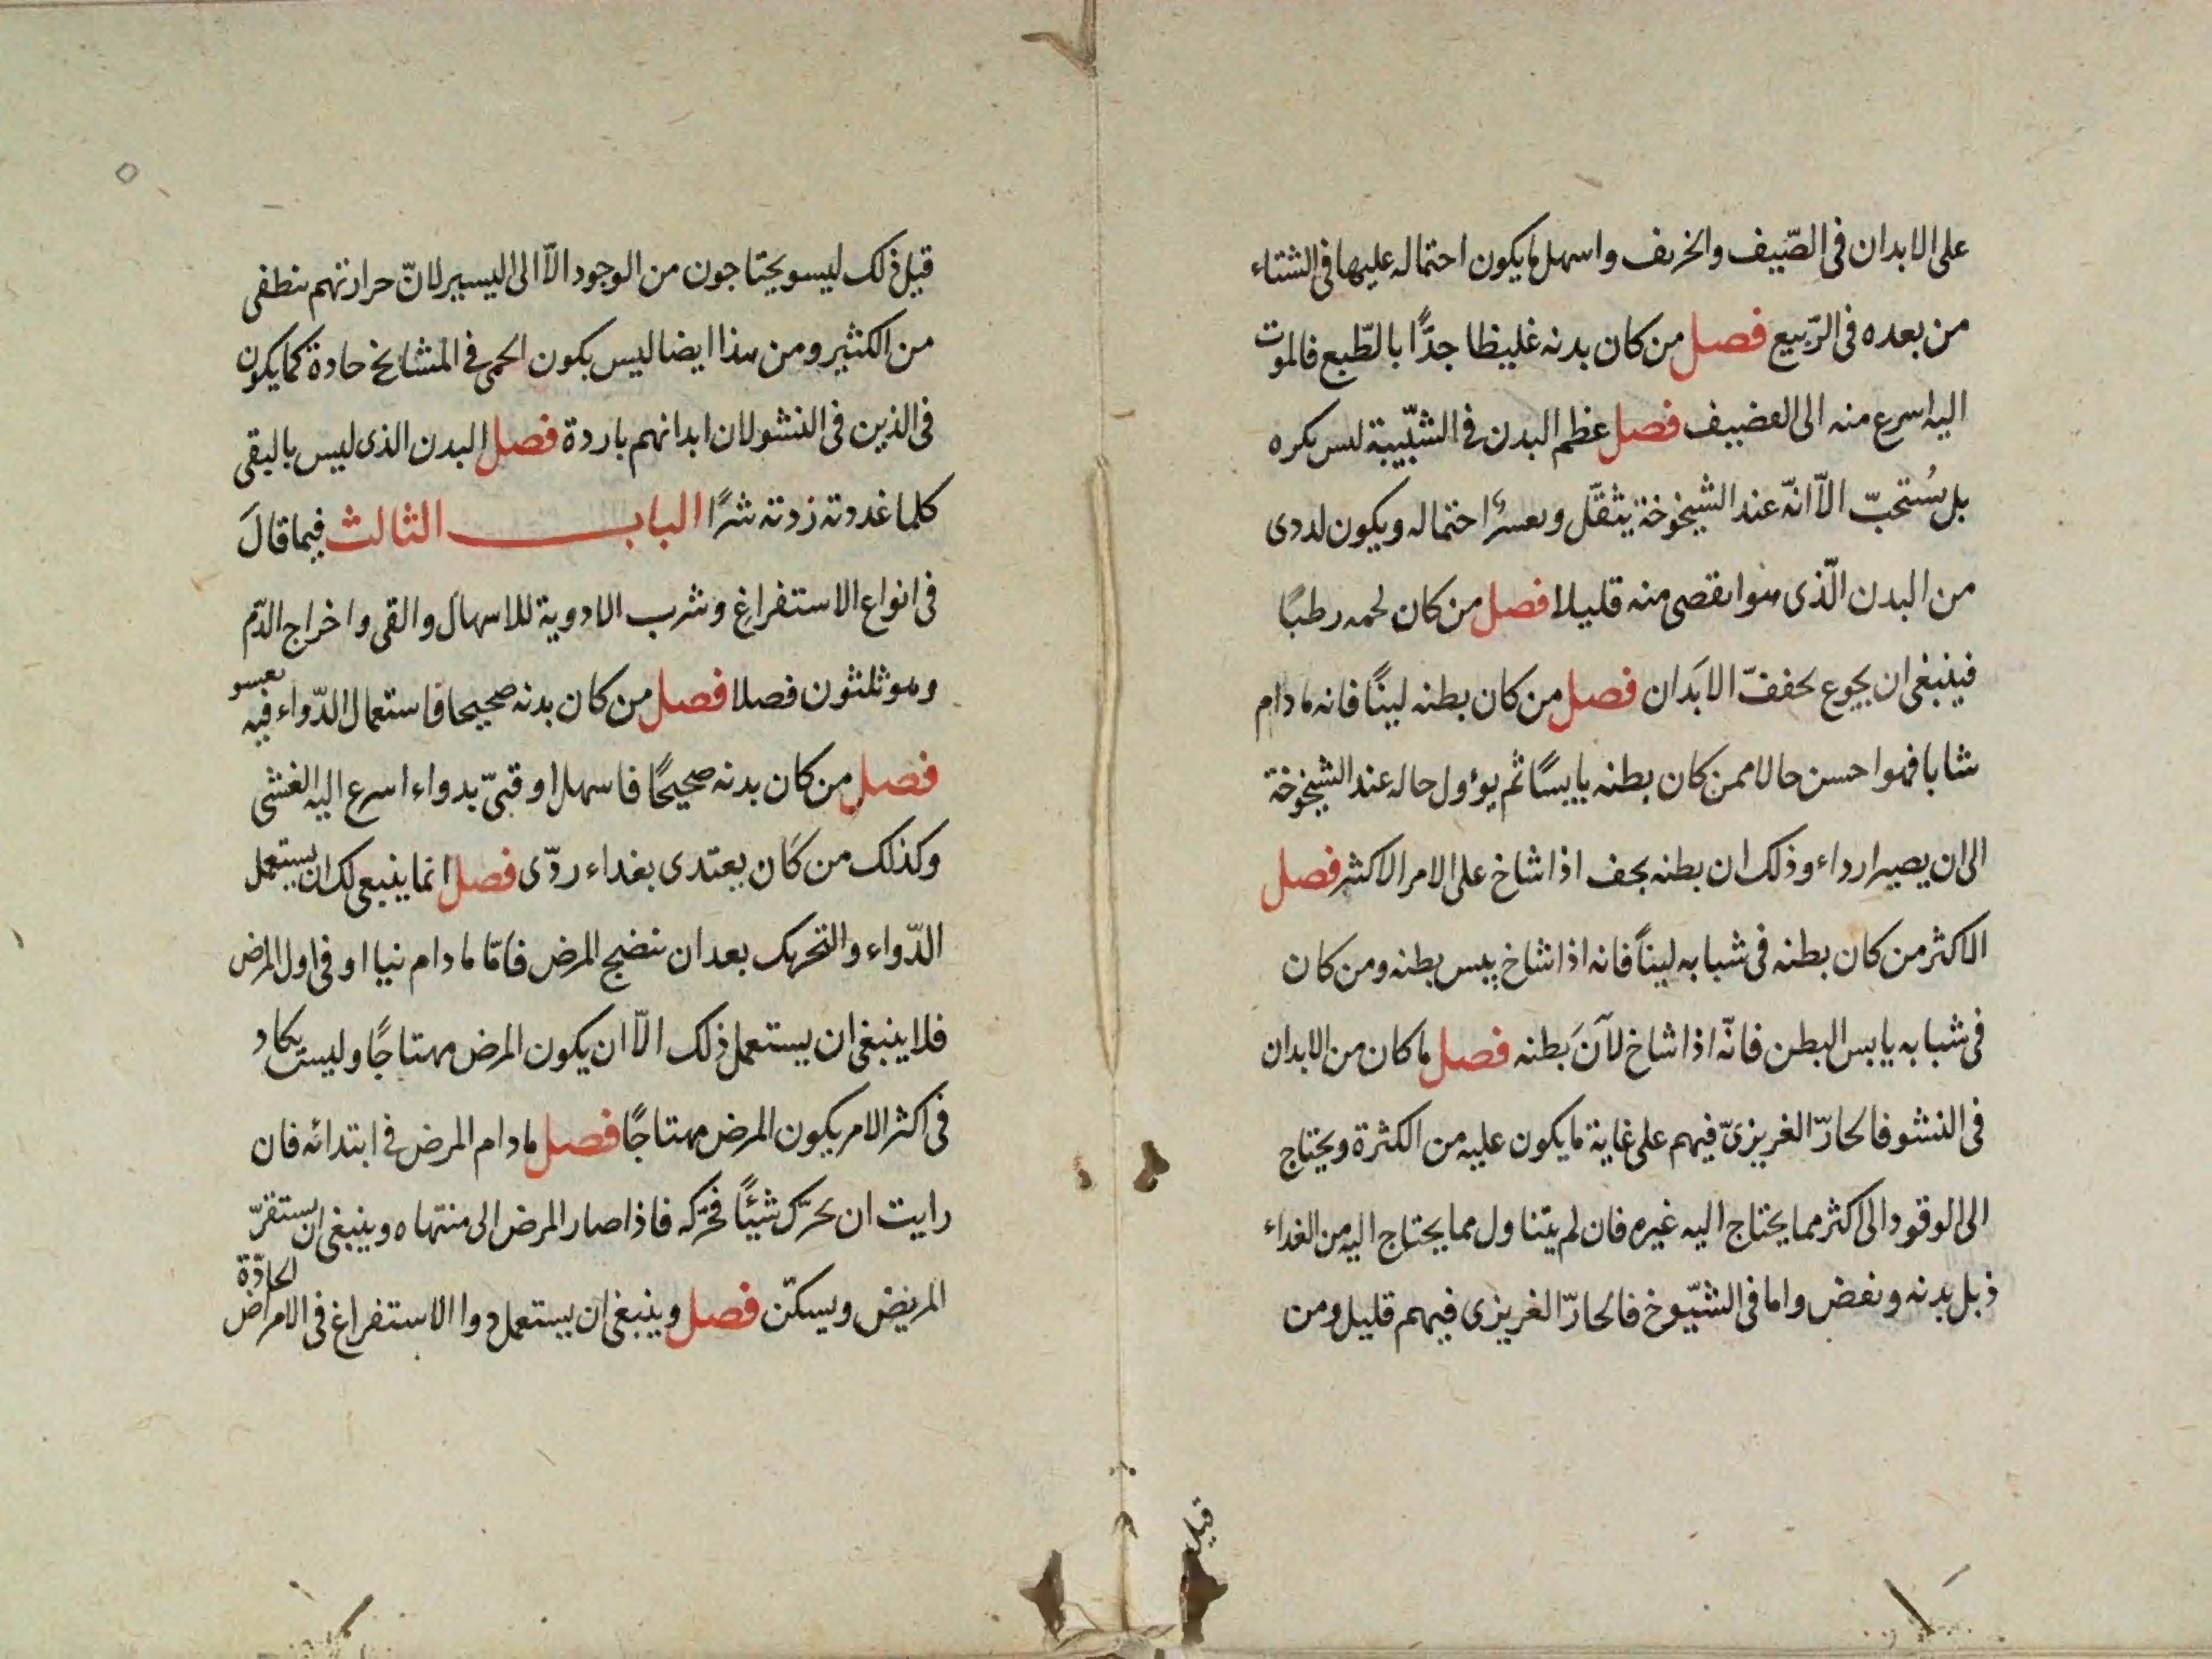 على الابدان فى الصّيف والخريف واسهل ما يكون احتماله عليها فى الشتاء
من بعده فى الرّبيع فصل من كان بدنه غليظا جدًّا بالطّبع فالموت
اليه اسرع منه الى القضيف فصل عظم البدن فى الشّبيبة ليس يكره
بل يُستحبّ الاّ انّه عند الشيخوخة يثقّل ويعسر احتماله ويكون لردى
من البدن الّذى هو انقص منه قليلا فصل من كان لحمه رطبًا
فينبغى ان يجوع يجفف الابَدان فصل من كان بطنه لينًا فانه ما دام
شابا فهو احسن حالا ممن كان بطنه يابسًا ثم يؤول حاله عند الشيخوخة
الى ان يصير ارداء وذلك ان بطنه يجف اذا شاخ على الامر الاكثر فصل
الاكثر من كان بطنه فى شبابه لينًا فانه اذا شاخ يبس بطنه ومن كان
فى شبابه يابس البطن فانّه اذا شاخ لآنَ بطنه فصل ما كان من الابدان
فى النشو فالحارّ الغريزىّ فيهم على غاية ما يكون عليه من الكثرة ويحتاج
الى الوقود الى اكثر مما يحتاج اليه غيره فان لم يتناول مما يحتاج اليه من الغداء
ذبل بدنه ونقص واما فى الشيّوخ فالحارّ الغريزى فيهم قليل ومن
قبل
قبل ذلك ليسو يحتاجون من الوجود الاّ الى اليسير لانّ حرارتهم تنطفى
من الكثير ومن هذا ايضا ليس يكون الحمى فى المشايخ حادة كما يكون
فى الذين فى النشو لان ابدانهم باردة فصل البدن الذى ليس بالبقى
كلما غدوته زدته شرًا الباب الثالث فيما قالَ
فى انواع الاستفراغ وشرب الادوية للاسهال والقى واخراج الدّم
وهو ثلثون فصلا فصل من كان بدنه صحيحا فاستعمال الدّواء فيه يعسو
فصل من كان بدنه صحيحًا فاسهل او قىّ بدواء اسرع اليه الغشى
وكذلك من كان يعتدى بغداء ردّى فصل انما ينبغى لك ان يستعمل
الدّواء والتحريك بعد ان ينضج المرض فامّا ما دام نيا او فى اول المرض
فلا ينبغى ان يستعمل ذلك الاّ ان يكون المرض مهتاجًا وليست يكاد
فى اكثر الامر يكون المرض مهتاجًا فصل ما دام المرض فى ابتدائه فان
رايت ان تحرّك شيئًا فحرّكه فاذا صار المرض الى منتهاه وينبغى ان يستقرّ
المريض ويسكّن فصل وينبغى ان يستعمل دوا الاستفراغ فى الامراض الحادّة